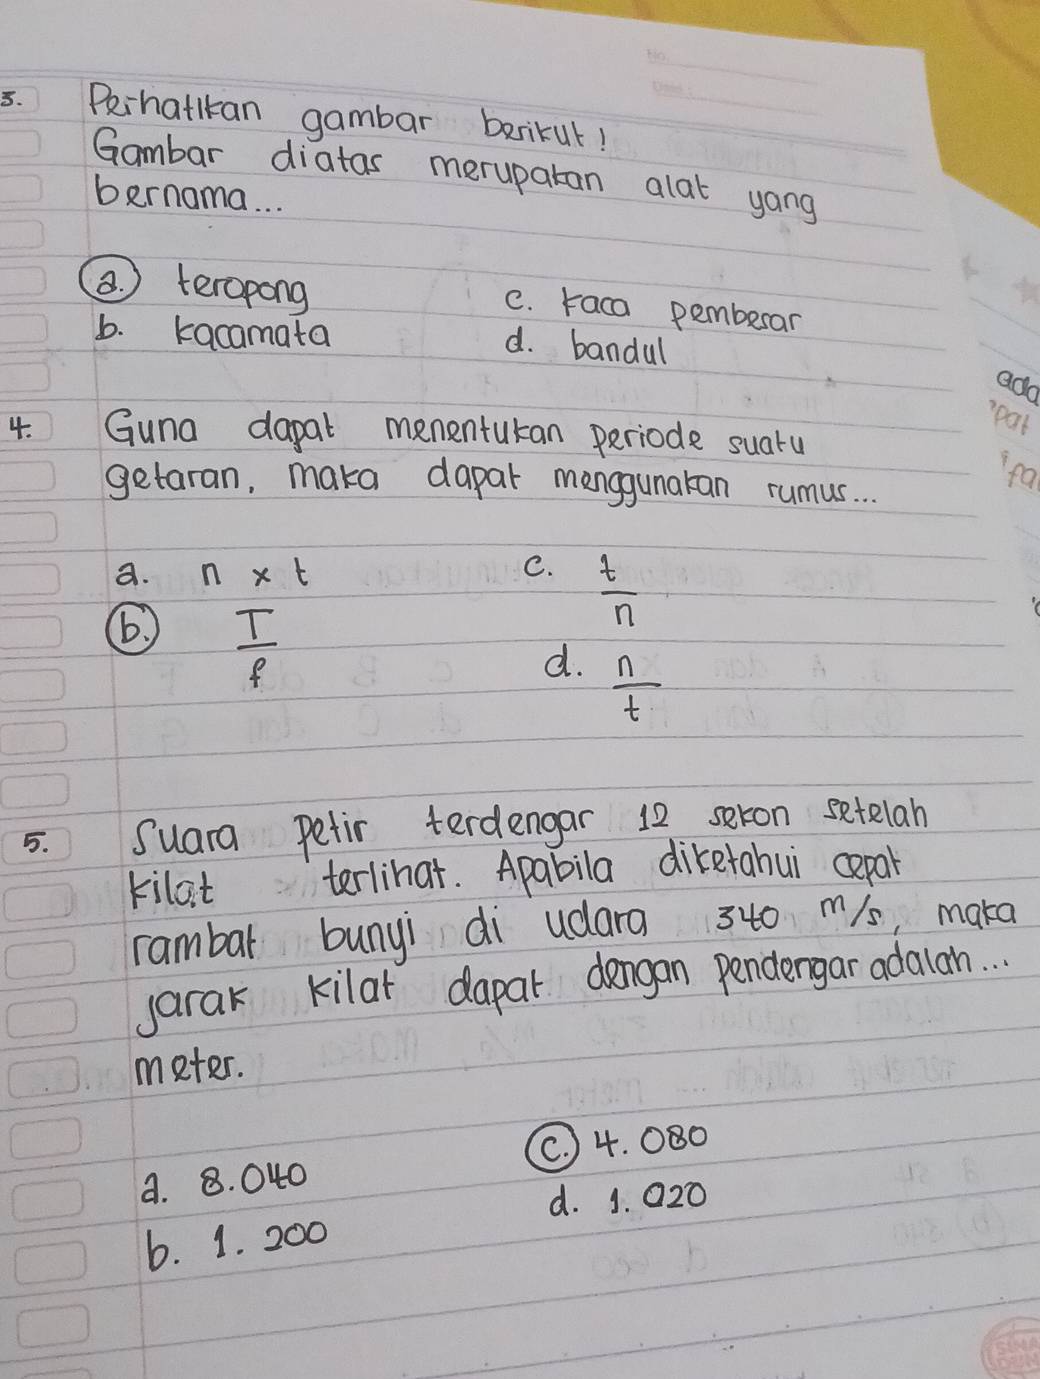 No.
Date :
3. Perhatikan gambar berikut!
Gambar diatas merupakan alat yang
bernama...
a. teropong
c. kaca pembesar
b. kacamata
d. bandul
4. Guna dapat menentukan periode suatu
getaran, maka dapat menggunakan rumus...
a. n x t
c. t/n
b. I/f
d. n/t
5. Suara petir terdengar 12 sekon setelah
kilat terlihat. Apabila diketahui cepat
rambat bunyi di udara 340 m/s, maka
jarak kilat dapat dengan pendengar adalah...
meter.
a. 8.040
c. 4.080
b. 1.200
d. 1.020
ada